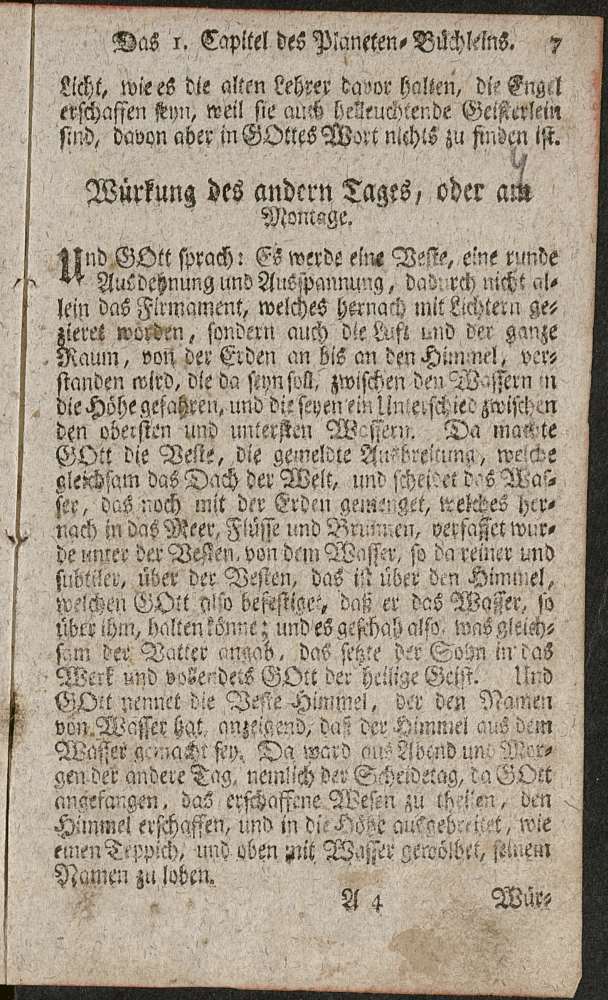 Das 1. Capitel des Planeten-Büchleins. 7
Licht, wie es die alten Lehrer davor halten, die Engel
erschaffen seyn, weil sie auch helleuchtende Geisterlein
sind, davon aber in GOttes Wort nichts zu finden ist.
Würkung des andern Tages, oder am
Montage.
Und GOtt sprach: Es werde eine Veste, eine runde
Ausdehnung und Ausspannung, dadurch nicht al-
lein das Firmament, welches hernach mit Lichtern ge-
zieret worden, sondern auch die Luft und der ganze
Raum, von der Erden an bis an den Himmel, ver-
standen wird, die da seyn soll, zwischen den Wassern in
die Höhe gefahren, und die seyen ein Unterschied zwischen
den obersten und untersten Wassern. Da machte
GOtt die Veste, die gemeldte Ausbreitung, welche
gleichsam das Dach der Welt, und scheidet das Was-
ser, das noch mit der Erden gemenget, welches her-
nach in das Meer, Flüsse und Brunnen, verfasset wur-
de unter der Vesten, von dem Wasser, so da reiner und
subtiler, über der Vesten, das ist über den Himmel,
welchen GOtt also befestiget, daß er das Wasser, so
über ihm, halten könne; und es geschah also, was gleich-
sam der Vatter angab, das setzte der Sohn in das
Werk und vollendets GOtt der heilige Geist. Und
GOtt nennet die Veste Himmel, der den Namen
von Wasser hat, anzeigend, daß der Himmel aus dem
Wasser gemacht sey. Da ward aus Abend und Mor-
gen der andere Tag, nemlich der Scheidetag, da GOtt
angefangen, das erschaffene Wesen zu theilen, den
Himmel erschaffen, und in die Höhe ausgebreitet, wie
einen Teppich, und oben mit Wasser gewölbet, seinem
Namen zu loben.
A 4 Wür-